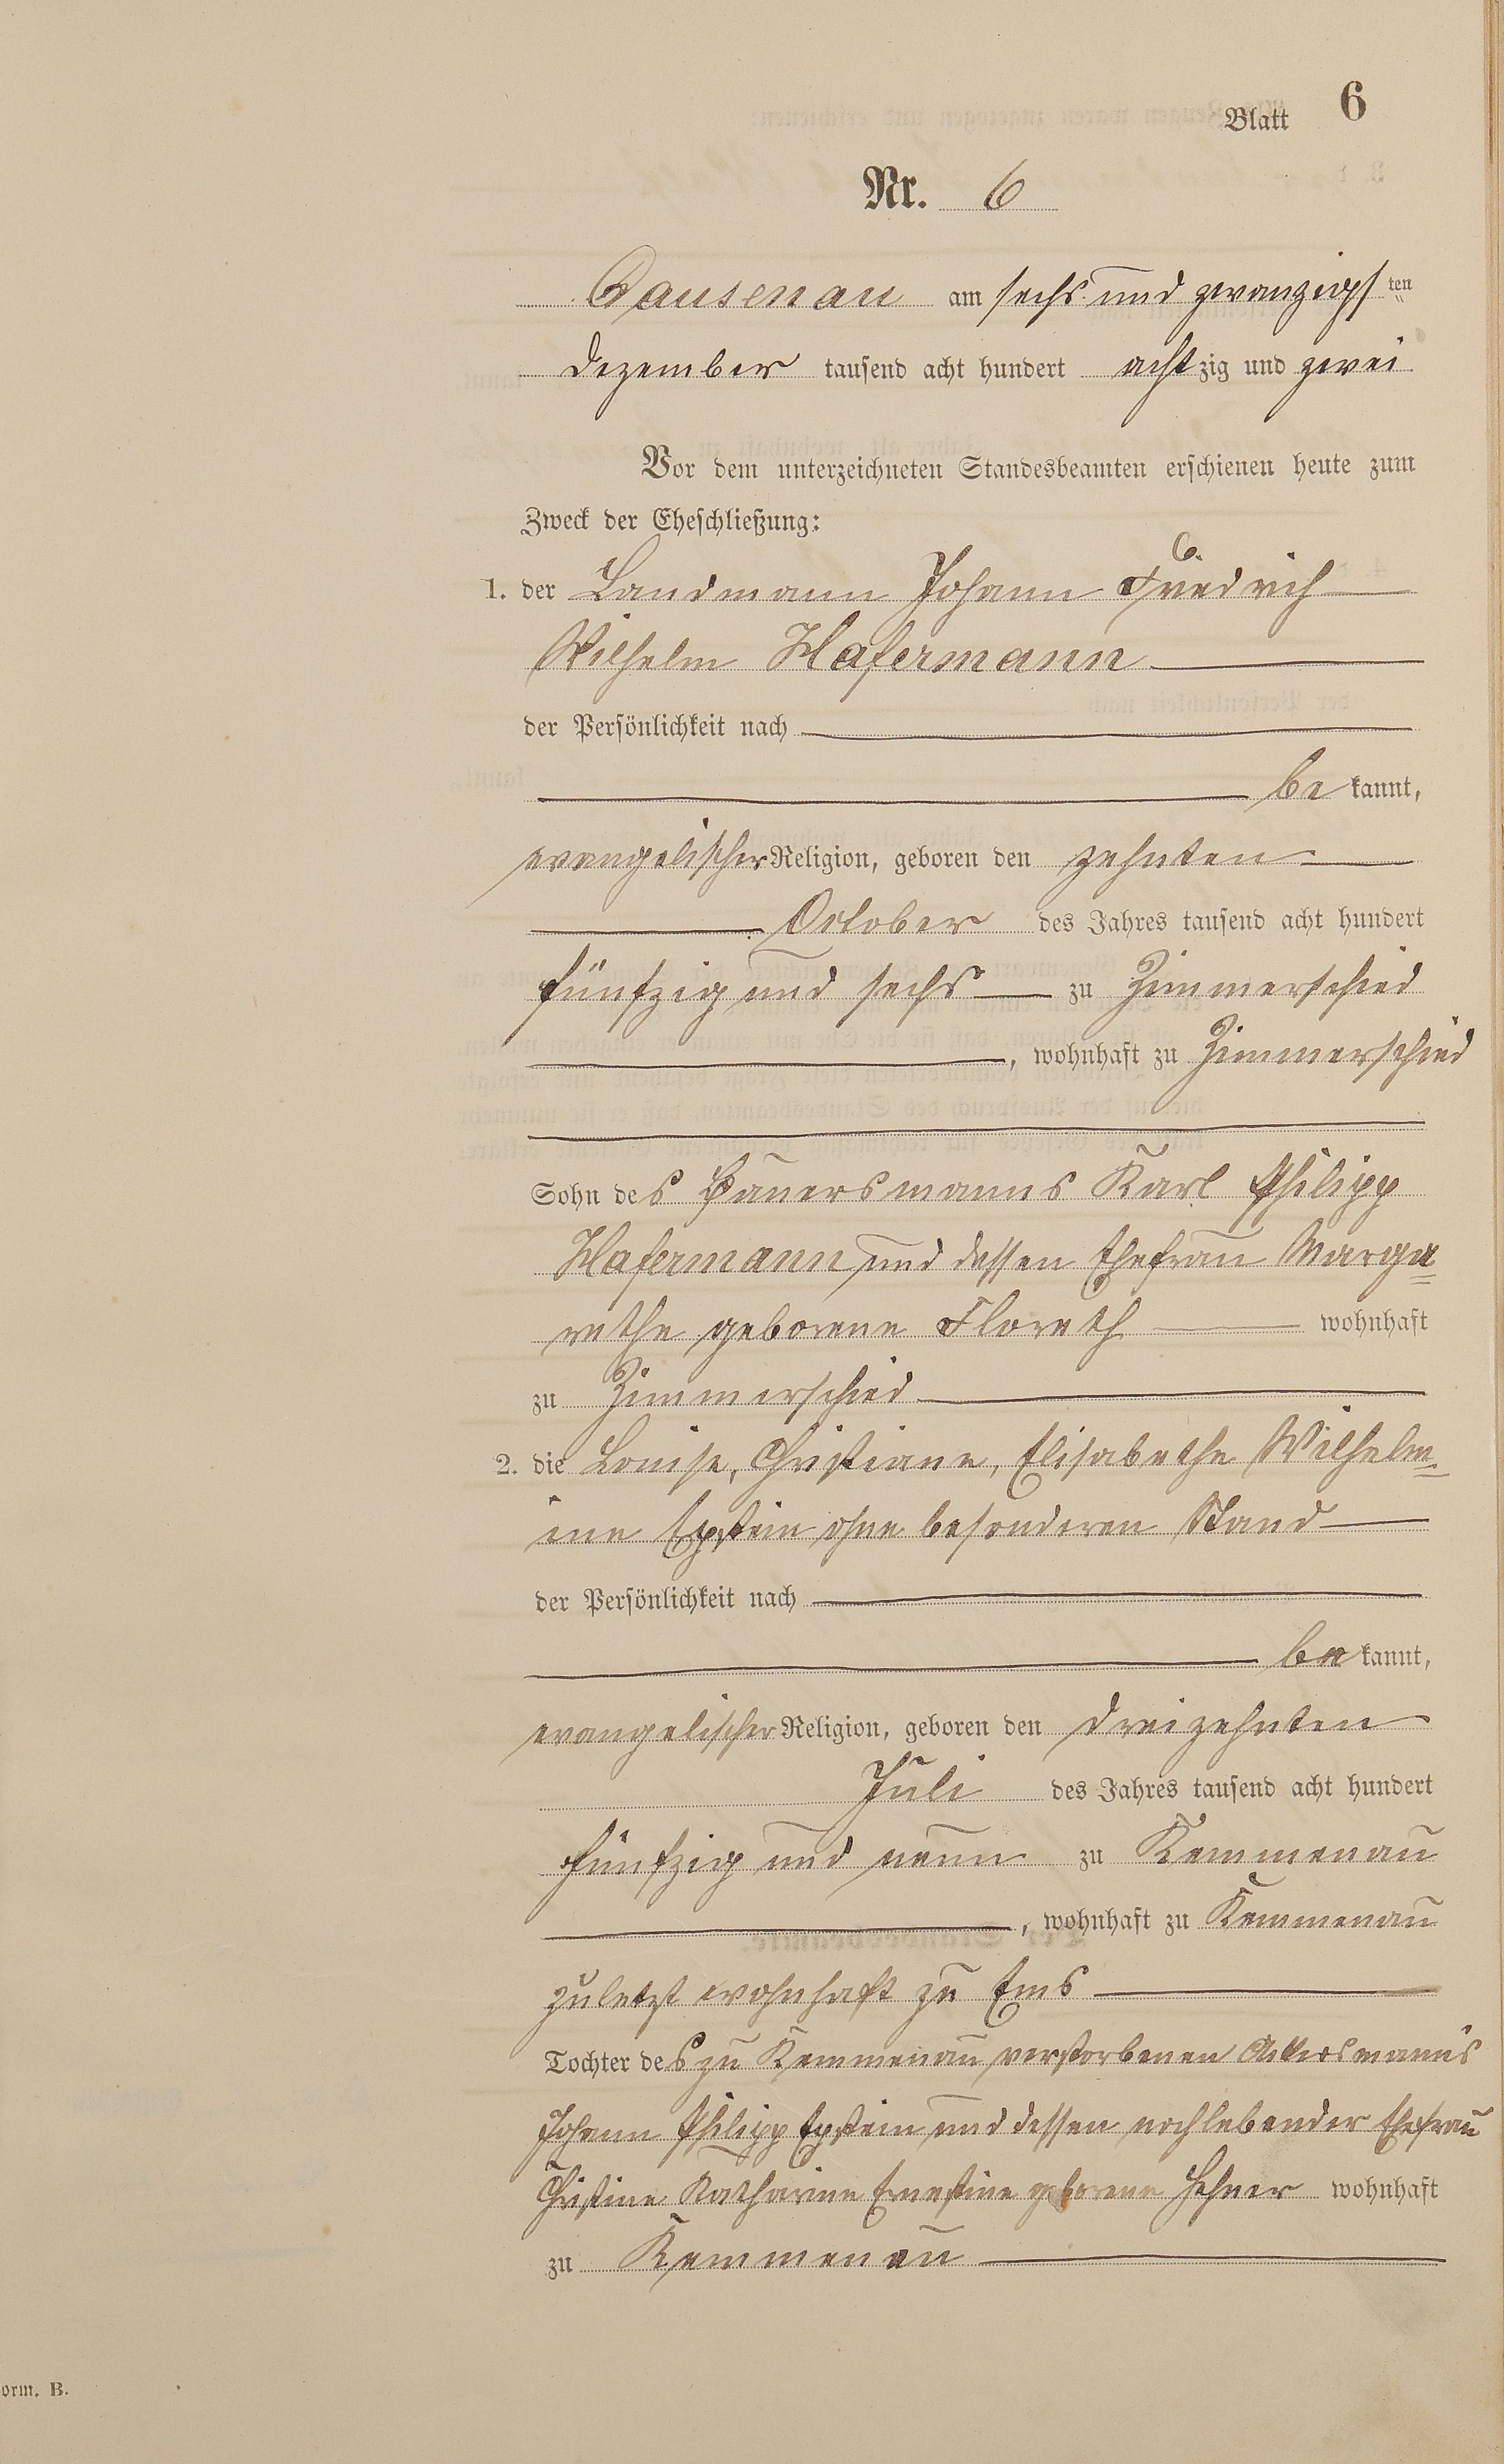 Blatt 6
Nr. 6
Dausenau am sechs und zwanzigs ten
Dezember tausend acht hundert achtzig und zwei
Vor dem unterzeichneten Standesbeamten erschienen heute zum
Zweck der Eheschließung:
6.
1. der Landmann Johann Friedrich
Wilhelm Hafermann
der Persönlichkeit nach
be kannt,
evangelischer Religion, geboren den zehnten
October des Jahres tausend acht hundert
fünfzig und sechs zu Zimmerschied
, wohnhaft zu Zimmerschied
Sohn des Bauersmanns Karl Philipp
Hafermann und dessen Ehefrau Marga=
rethe geborene Floreth wohnhaft
zu Zimmerschied
2. die Louise, Christiane, Elisabethe Wilhelm=
ine Epstein ohne besonderen Stand
der Persönlichkeit nach
be kannt,
evangelischer Religion, geboren den dreizehnten
Juli des Jahres tausend acht hundert
fünfzig und neun zu Kemmenau
, wohnhaft zu Kemmenau
zuletzt wohnhaft zu Ems
Tochter des zu Kemmenau verstorbenen Ackersmanns
Johann Philipp Epstein und dessen noch lebender Ehefrau
Christine Katharine Ernestine geborene Hehner wohnhaft
zu Kemmenau
orm. B.